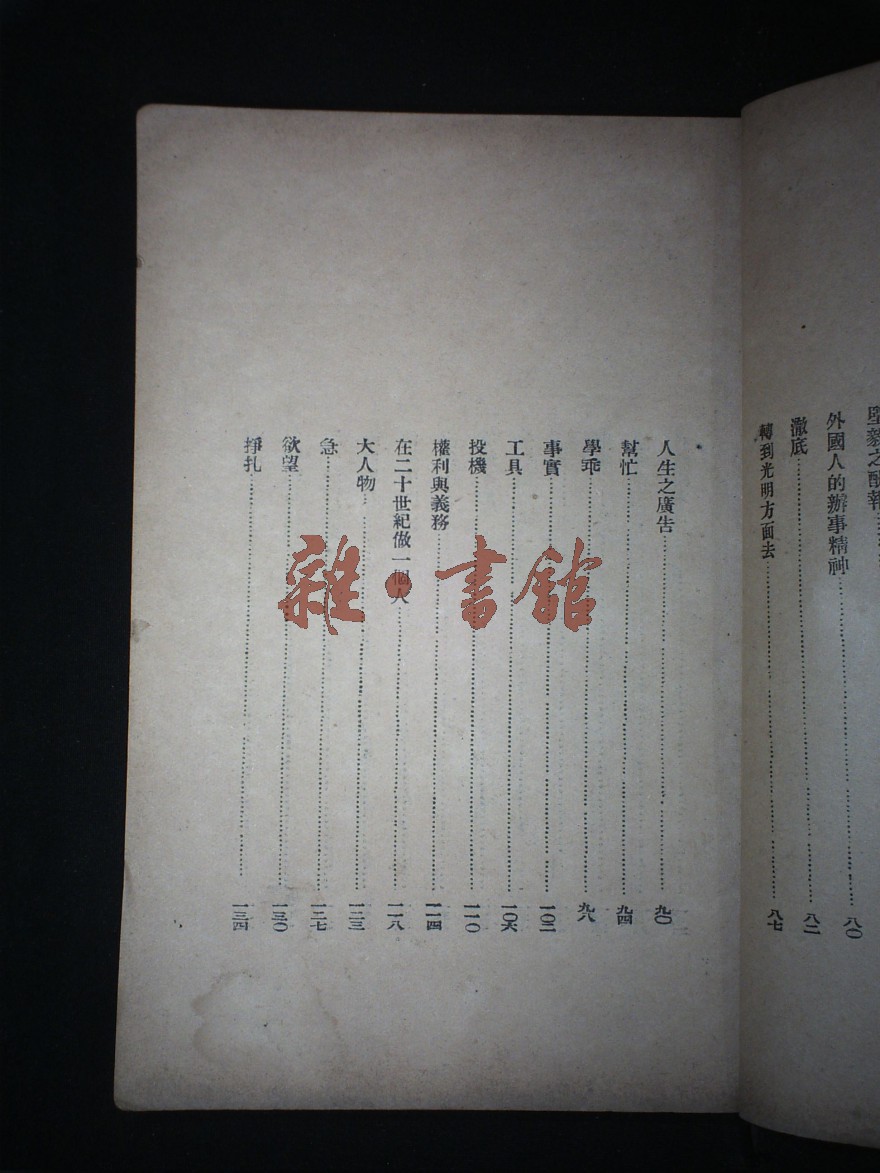 堅毅之酬報
外國人的辦事精神……八〇
澈底……八二
轉到光明方面去……八七
人生之廣告……九〇
幫忙……九四
學乖……九八
事實……一〇二
工具……一〇六
投機……一一〇
權利與義務……一一四
在二十世紀做一個人……一一八
大人物……一二三
急……一二七
欲望……一三〇
掙扎……一三四
雜·書館